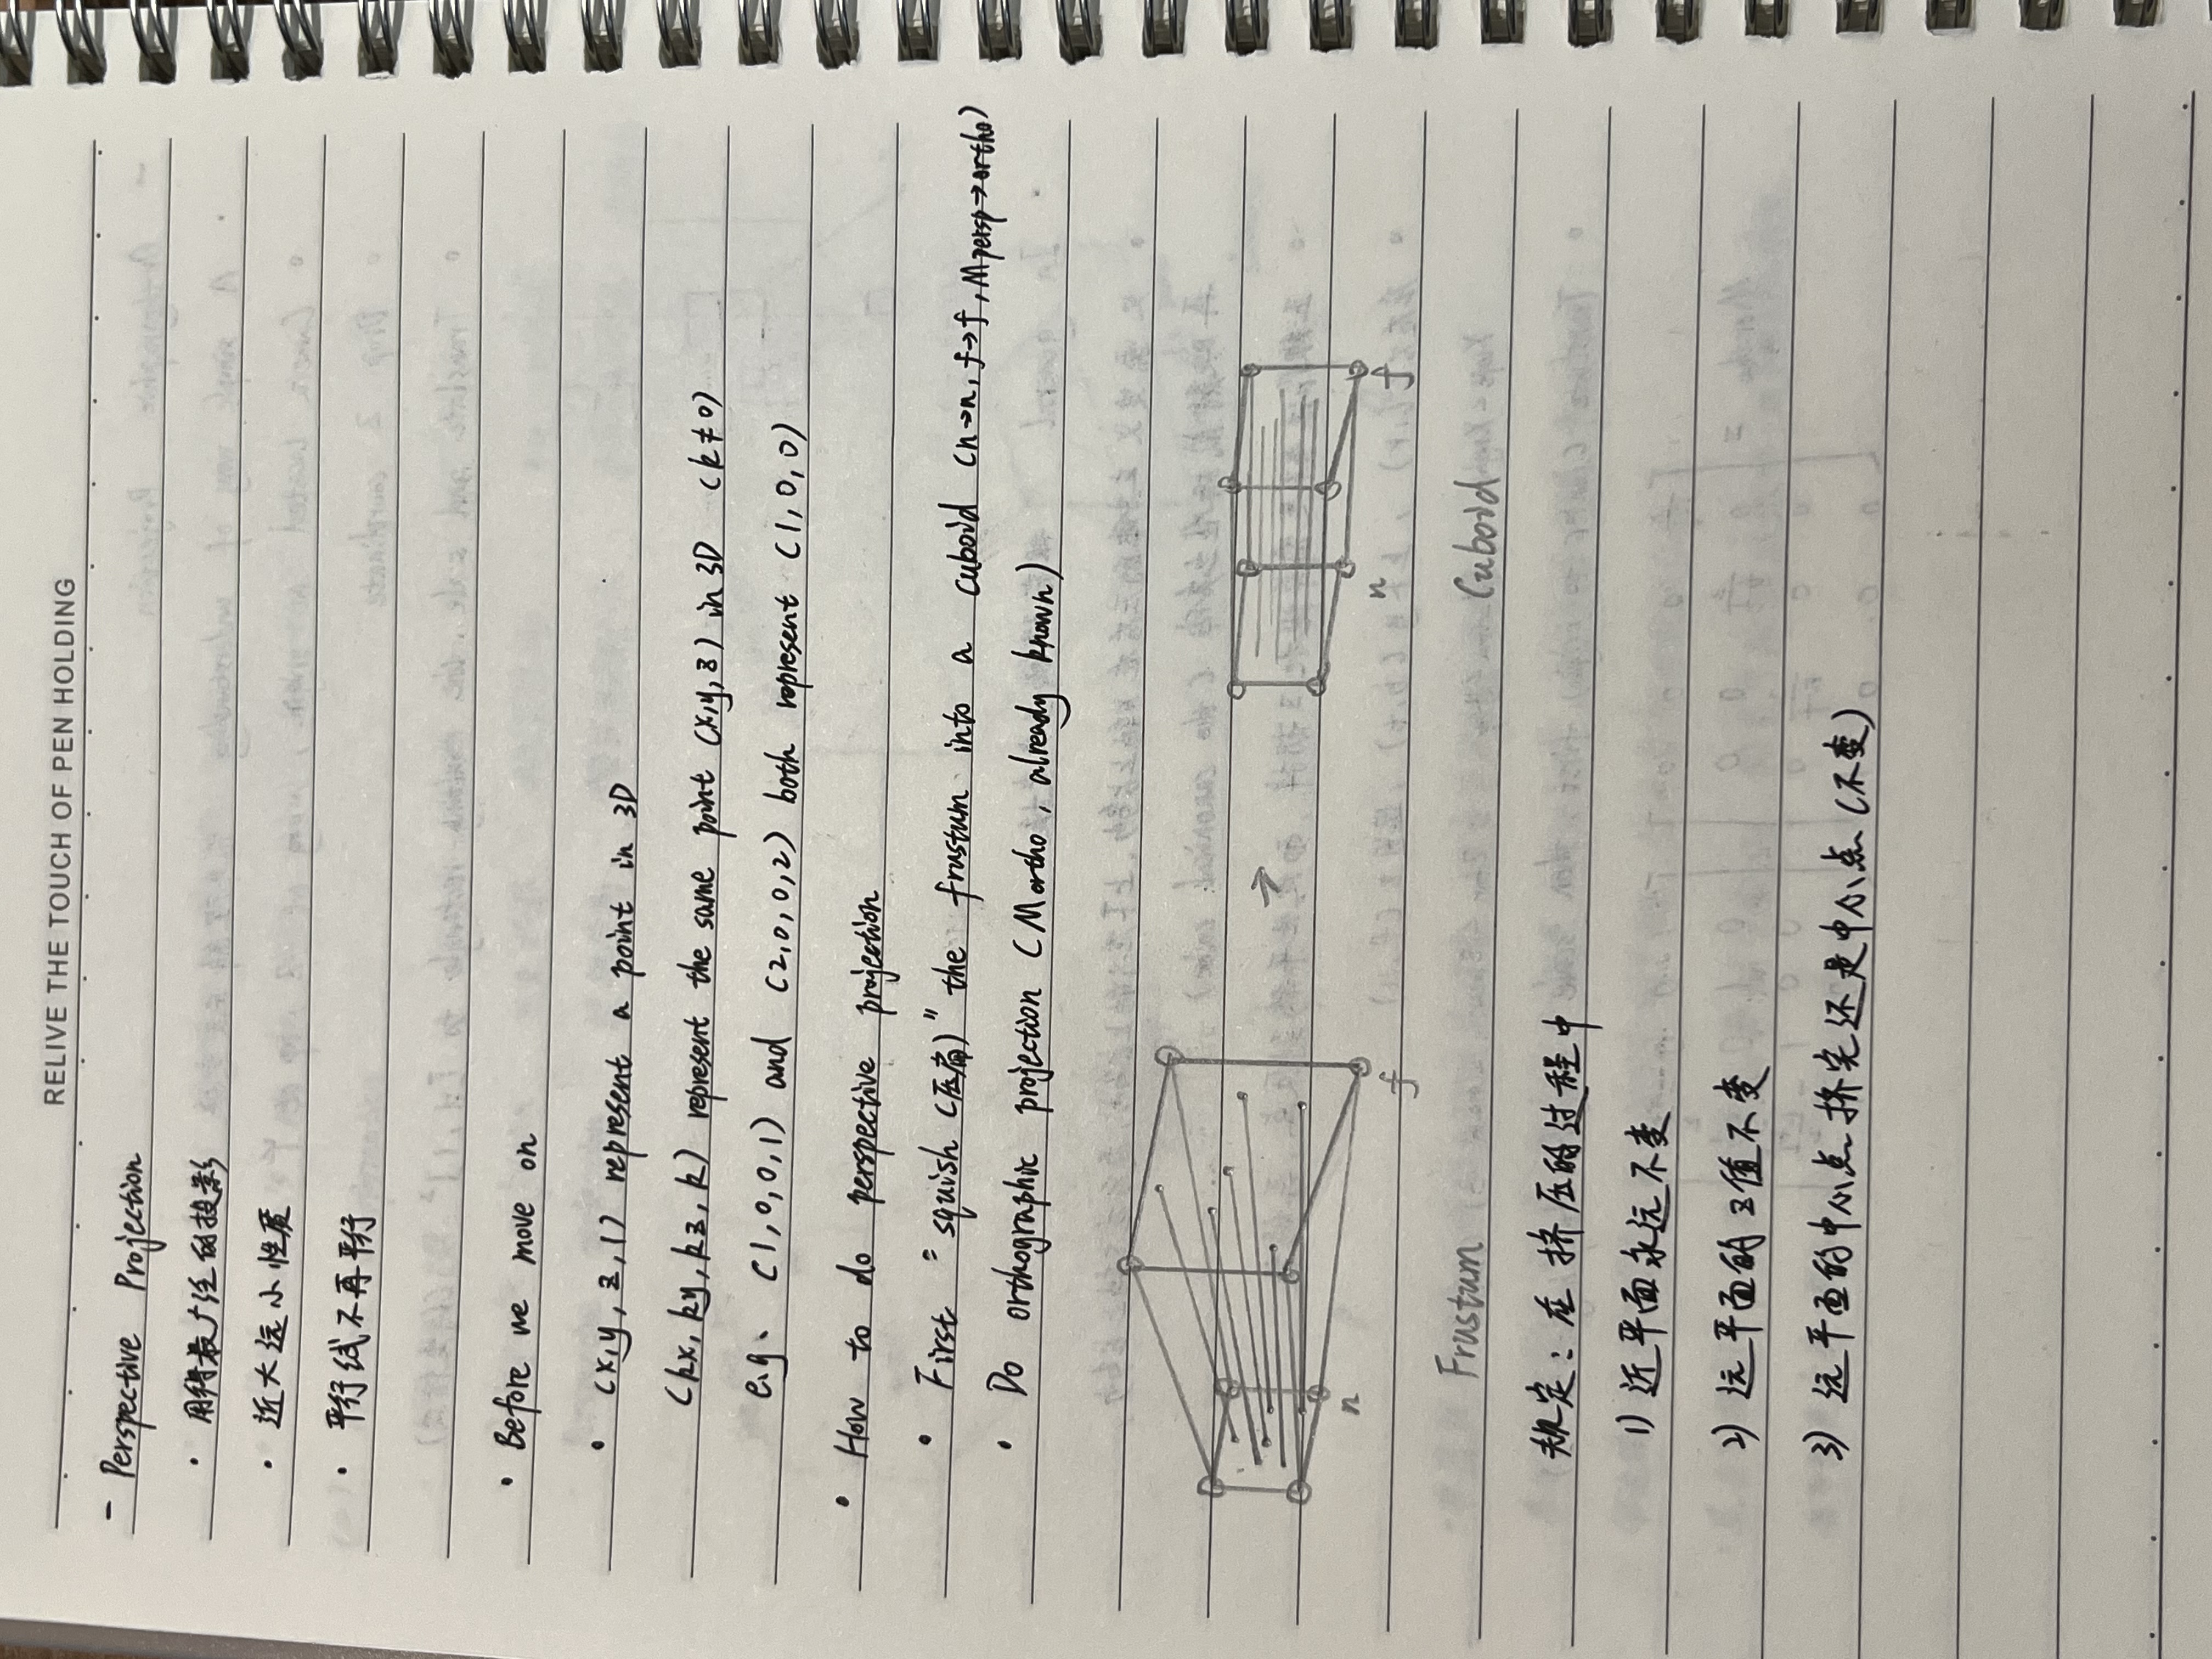 RELIVE THE TOUCH OF PEN HOLDING
- Perspective Projection
· 用得最广泛的投影
· 近大远小性质
· 平行线不再平行
· Before we move on
· (x,y,z,1) represent a point in 3D
(kx,ky,kz,k) represent the same point (x,y,z) in 3D (k≠0)
e.g. (1,0,0,1) and (2,0,0,2) both represent (1,0,0)
· How to do perspective projection
· First "squish (压扁)" the frustum into a cuboid (n→n, f→f, Mpersp→ortho)
· Do orthographic projection (Mortho, already known)
→
n f n f
Frustum Cuboid
规定：在挤压的过程中
1) 近平面永远不变
2) 远平面的z值不变
3) 远平面的中心点挤完还是中心点(不变)